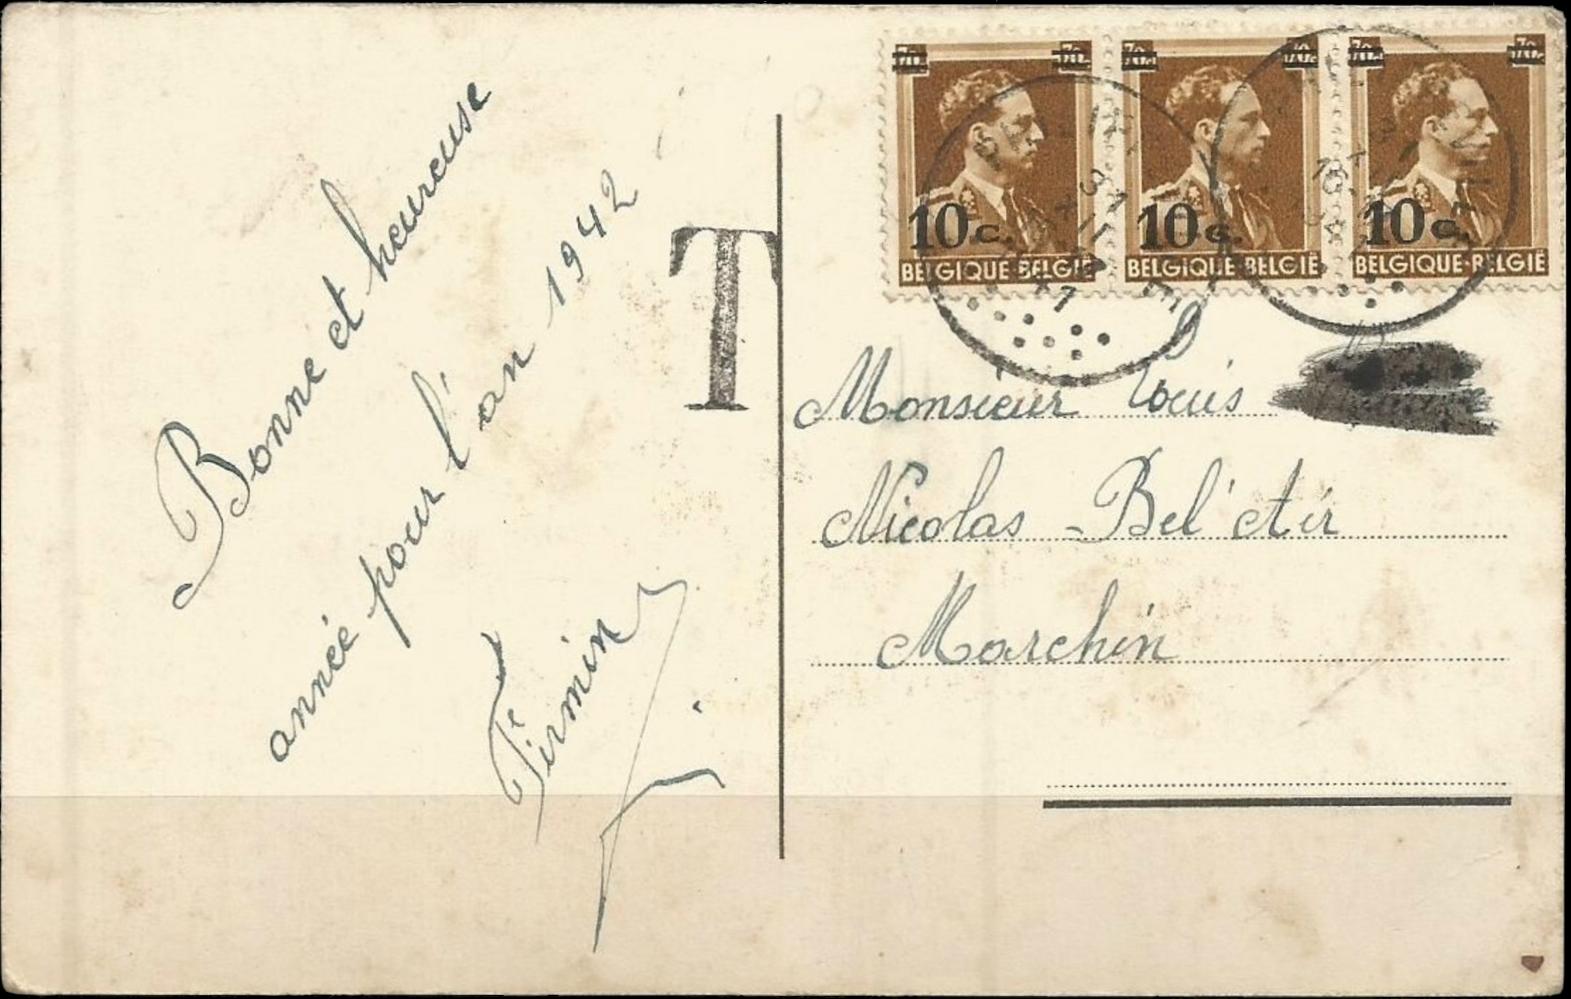 Bonne et heureuse
année pour l'an 1942
Firmin
T
10 c.
BELGIQUE-BELGIË
10 c.
BELGIQUE-BELGIË
10 c.
BELGIQUE-BELGIË
31
XII
Monsieur Louis
Nicolas - Bel' Air
Marchin